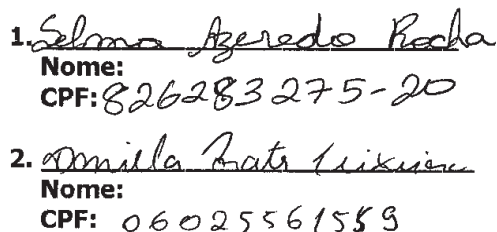 1. Selma Azeredo Rocha
Nome:
CPF: 826283275-20
2.
Nome:
CPF: 06025561589